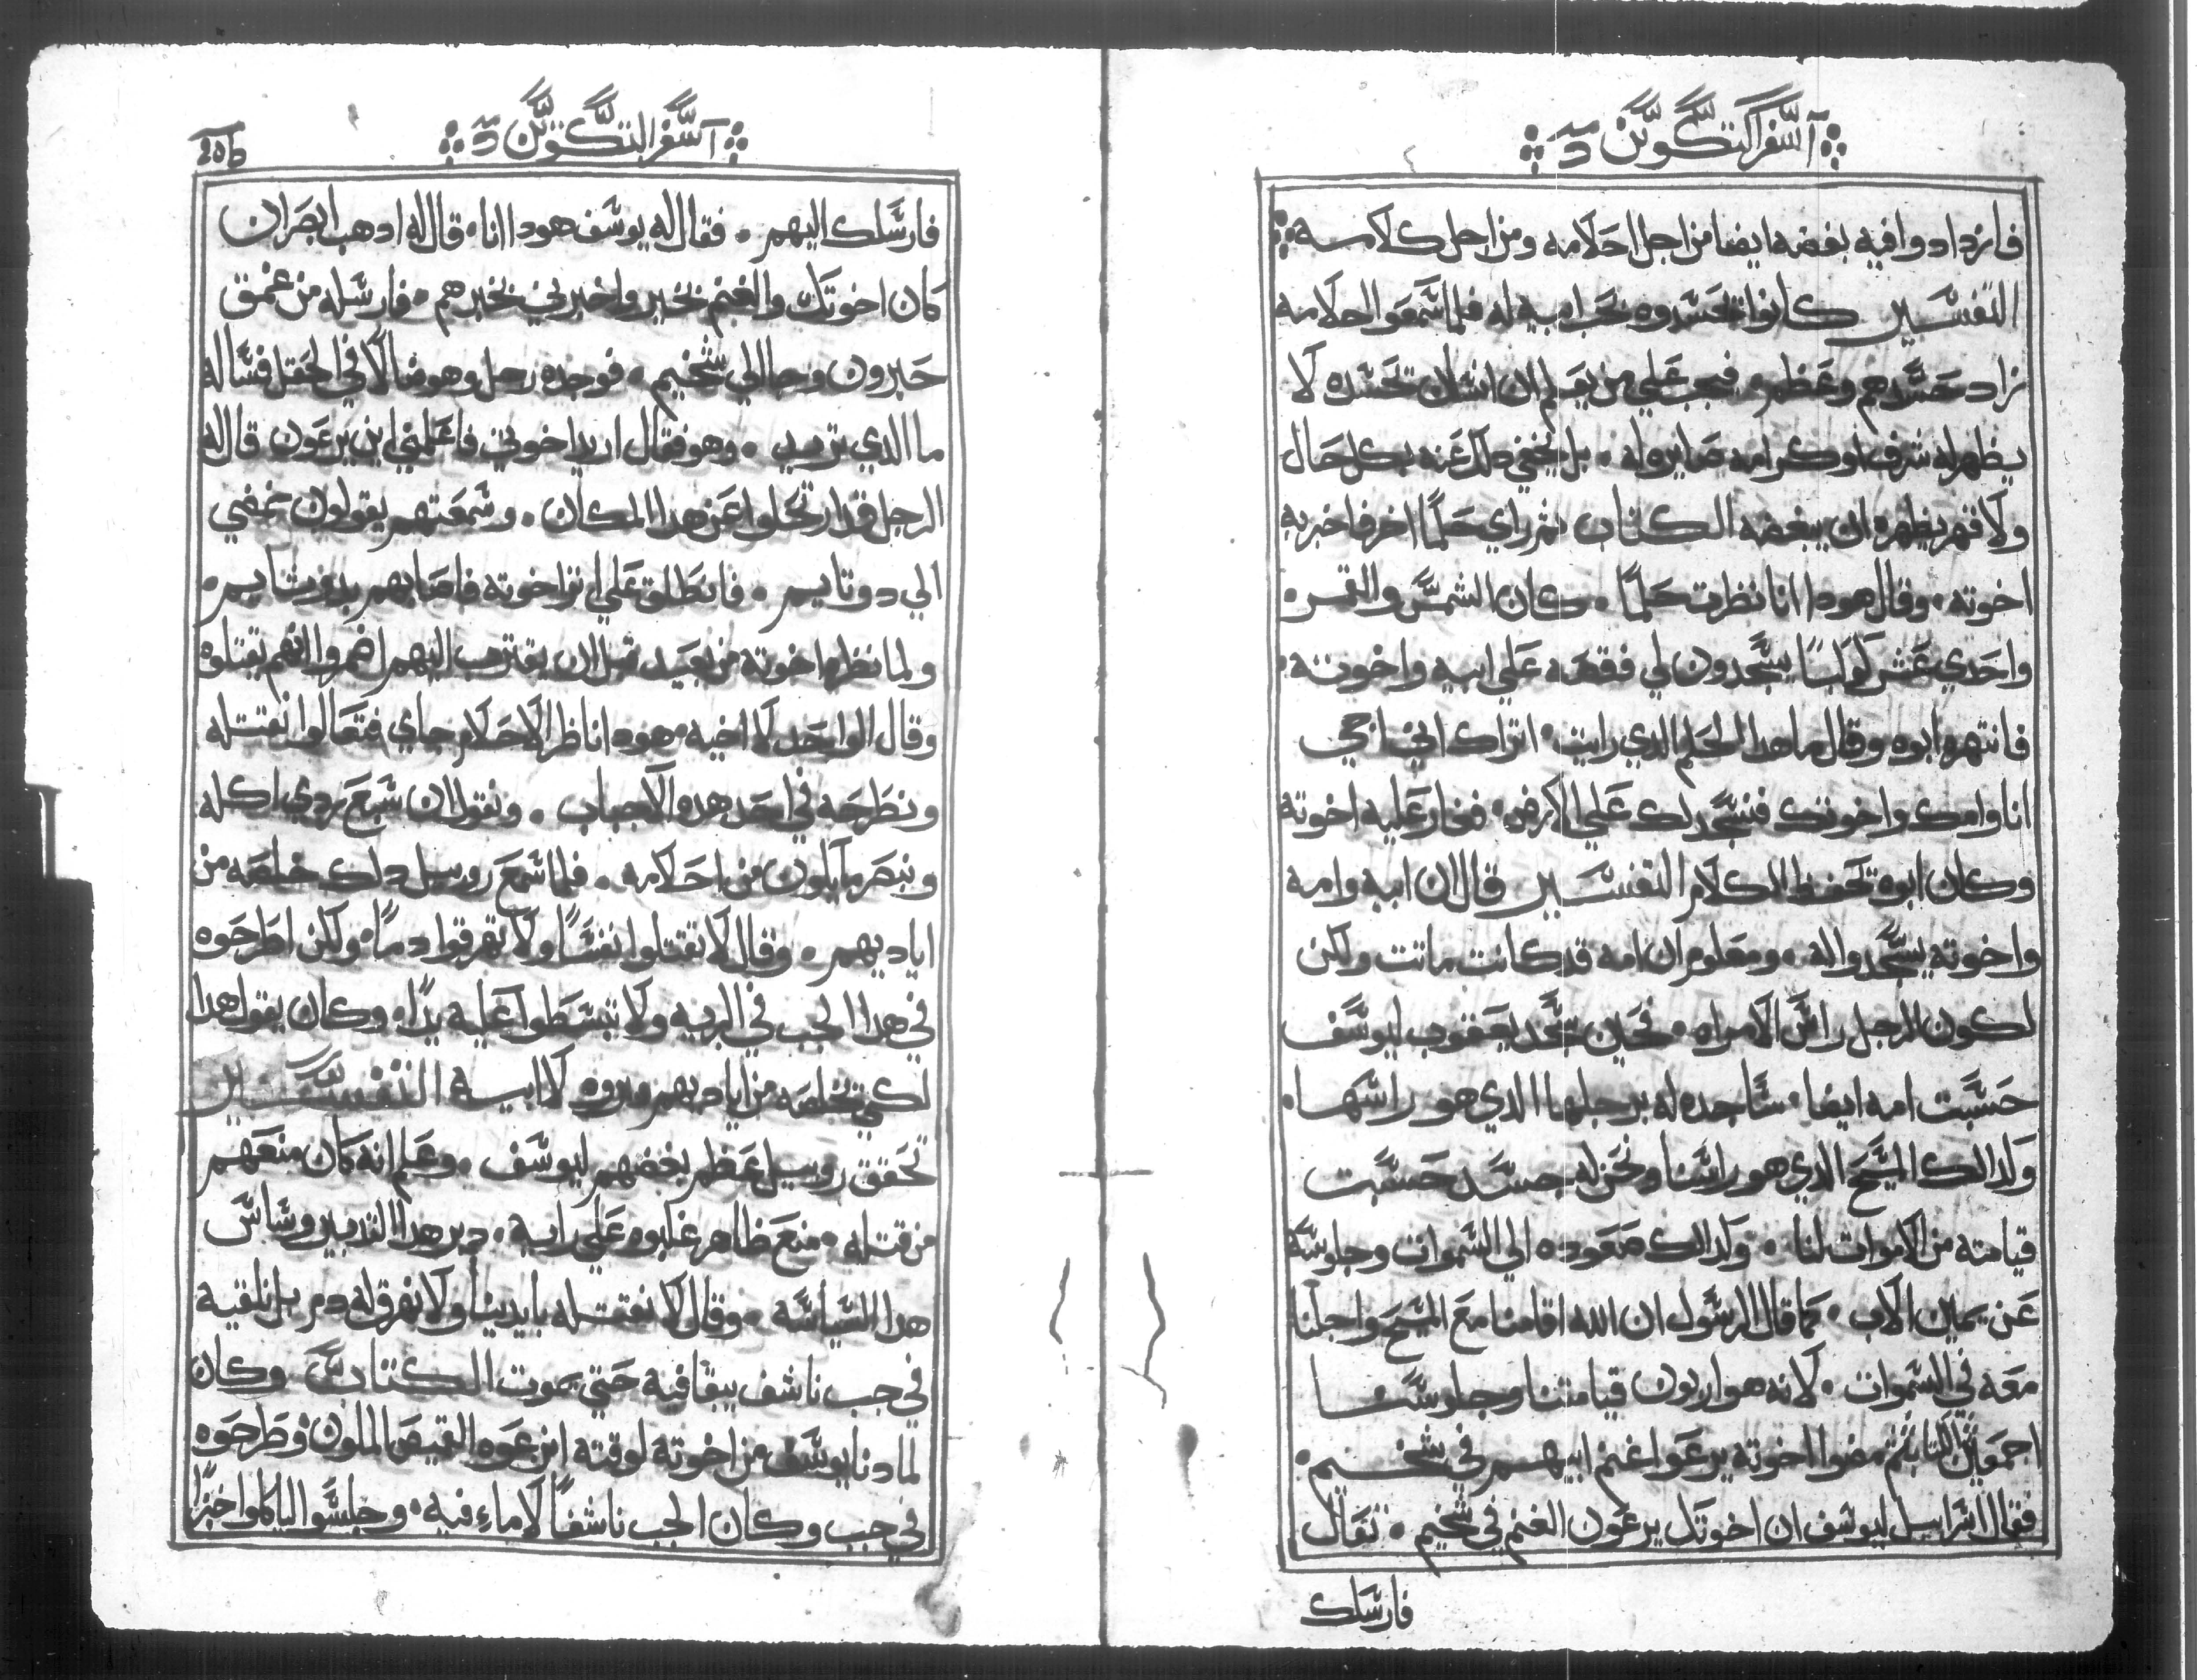 اسفر التكوين
فازدادوا فيه بغضه ايضا من اجل احلامه ومن اجل كلامه
التفسير كانوا تحسدوه نحب ابيه له فلما سمعوا احلامه
زاد حسدهم وعظم فيجب علي من يعلم ان انسان تحسده لا
يظهر له شرف او كرامه صايره له بل يخفي دلك عنه بكل حال
ولا فهم يظهره ان يبغضه الكتاب ثم راي حلما اخر فاخبر به
اخوته وقال هودا انا نظرت حلما كان الشمس والقمر
واحدي عشر كوكبا يسجدون لي فقصه علي ابيه واخوته
فانتهره ابوه وقال ما هدا الحلم الدي رايت اتراك اني اجي
انا وامك واخوتك فنسجد لك علي الارض فغار عليه اخوته
وكان ابوه تحفظ الكلام التفسير قال ان ابيه وامه
واخوته يسجدوا له ومعلوم ان امه قد كانت ماتت ولكن
لكون الرجل راس الامراه فحين سجد يعقوب ليوسف
حسبت امه ايضا ساجده له برجلها الدي هو راسها
ولدالك المسيح الدي هو راسنا ونحن له جسد حسبت
قيامته من الاموات لنا ولدالك صعوده الي السموات وجلوسه
عن يمين الاب كما قال الرسول ان الله اقامنا مع المسيح واجلسنا
معه في السموات لانه هو اربون قيامتنا وجلوسنا
اجمعين الكتاب ثم مضوا اخوته يرعوا غنم ابيهم في شخيم
فقال اسراييل ليوسف ان اخوتك يرعون الغنم في شخيم تعال
فارسلك
اسفر التكوين
206
فارسلك اليهم فقال له يوسف هودا انا قال له ادهب ابصر ان
كان اخوتك والغنم بخير واخبرني بخبرهم فارسله من غمق
حبرون وجا الي شخيم فوجده رجل وهو ضالا في الحقل فساله
ما الدي تريد وهو فقال اريد اخوتي فاعلمني اين يرعون قال له
الرجل قد ارتحلوا عن هدا المكان وسمعتهم يقولون نمضي
الي دوتايم فانطلق علي اثر اخوته فاصابهم بدوثايم
ولما نظره اخوته من بعيد قبل ان يقترب اليهم اضمروا انهم يقتلوه
وقال الواحد لاخيه هودا ناظر الاحلام جاي فتعالوا نقتله
ونطرحه في احد هده الاجباب ونقول ان سبع ردي اكله
ونبصر ما يكون من احلامه فلما سمع روبيل دلك خلصه من
اياديهم وقال لا تقتلوا نفسا ولا تهرقوا دما ولكن اطرحوه
في هدا الجب في البريه ولا تبسطوا عليه يدا وكان يقول هدا
لكي تخلصه من اياديهم ويروه لابيه التفسير
تحقق روبيل عظم بغضهم ليوسف وعلم انه كان منعهم
من قتله منع ظاهر غلبوه علي رايه دبر هدا التدبير وساس
هدا السياسه وقال لا نقتله بايدينا ولا نهرق له دم بل نلقيه
في جب ناشف يبقا فيه حتي يموت الكتاب وكان
لما دنا يوسف من اخوته لوقته انزعوه القميص الملون وطرحوه
في جب وكان الجب ناشفا لا ماء فيه وجلسوا لياكلوا خبزا